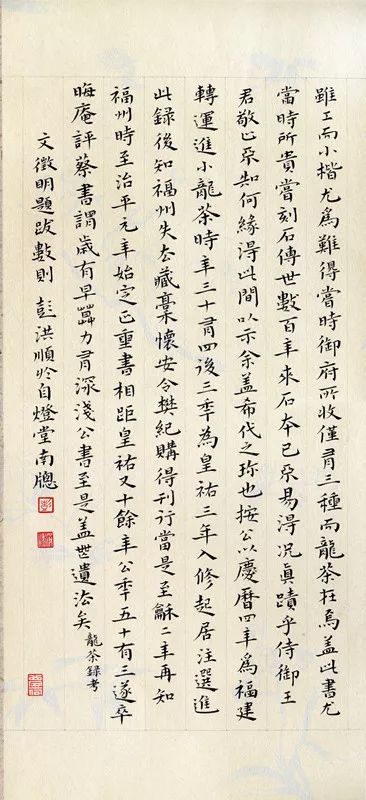 雖工而小楷尤為難得當時御府所收僅有三種而龍茶在焉蓋此書尤
當時所貴嘗刻石傳世數百年來石本已不易得況真蹟乎侍御王
君敬止不知何緣得此間以示余蓋希代之珍也按公以慶曆四年為福建
轉運進小龍茶時年三十有四後三年為皇祐三年入修起居注選進
此錄後知福州失去藏稾懷安令樊紀購得刊行當是至龢二年再知
福州時至治平元年始定正重書相距皇祐又十餘年公年五十有三遂卒
晦庵評蔡書謂歲有早莫力有深淺公書至是蓋無遺法矣 龍茶錄考
文徵明題跋數則 彭洪順於自燈堂南窗